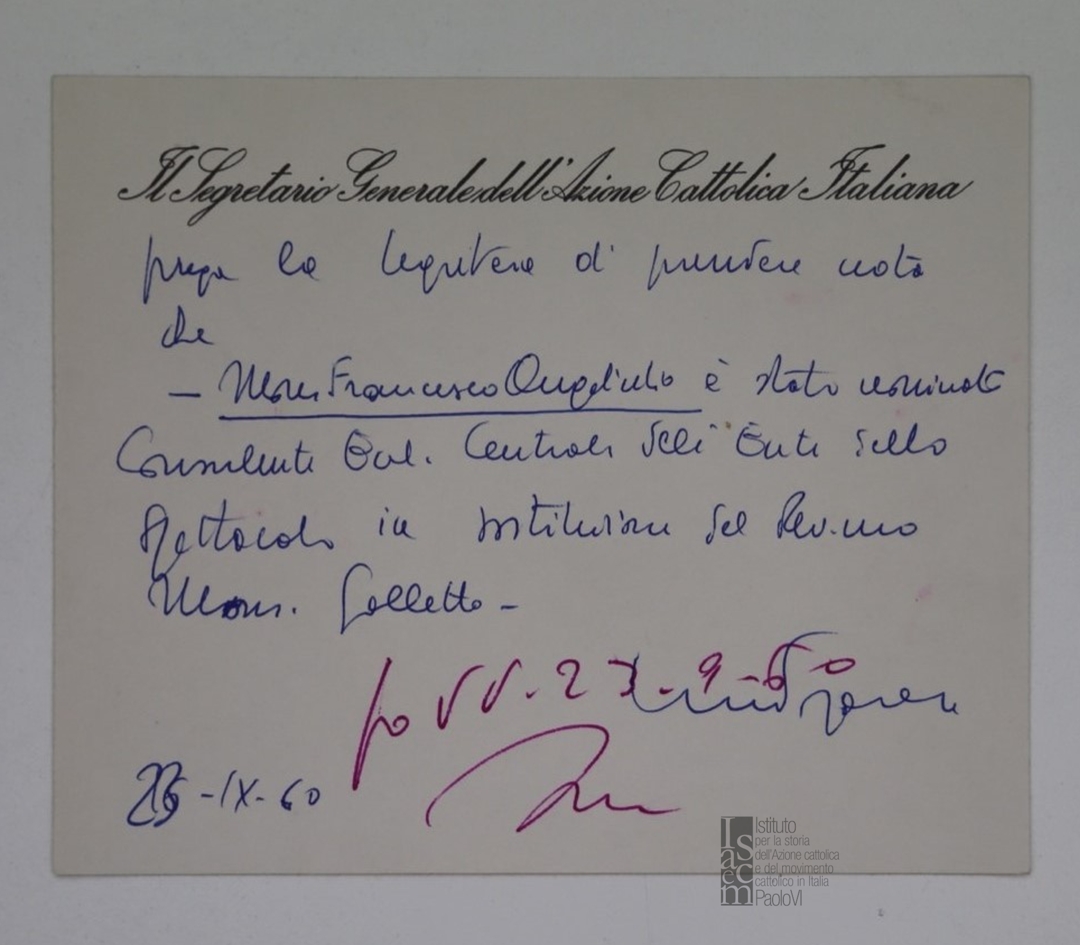 Il Segretario Generale dell'Azione Cattolica Italiana
prega la segreteria di prendere nota
che
— Mons. Francesco Angelicchio è stato nominato
Consulente Eccl. Centrale dell'Ente dello
Spettacolo in sostituzione del Rev.mo
Mons. Galletto -
27.9.60
-IX-60
Istituto
per la storia
dell'Azione cattolica
e del movimento
cattolico in Italia
PaoloVI
Isacem